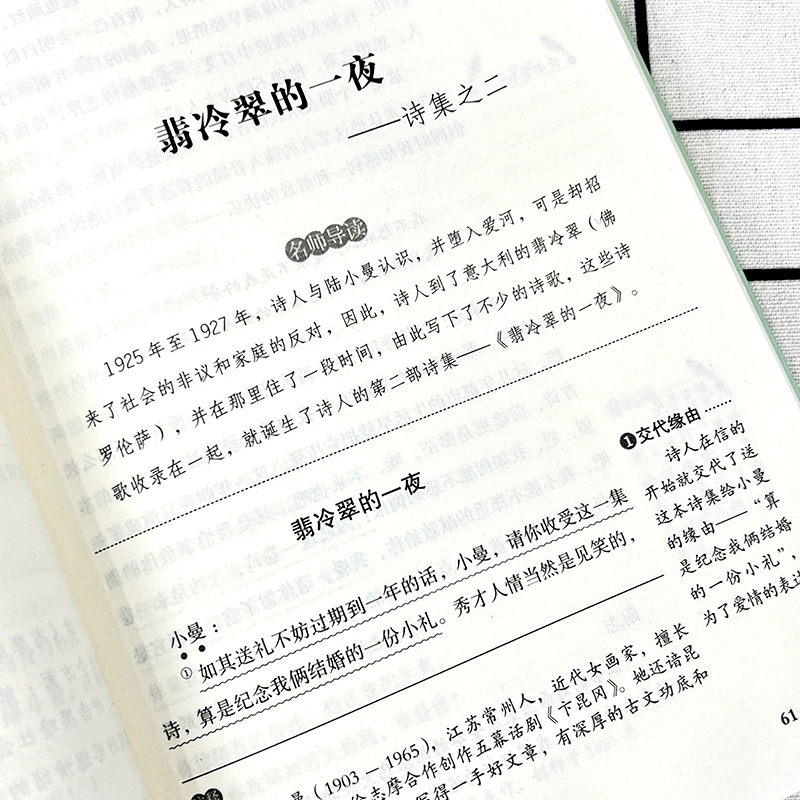 翡冷翠的一夜
——诗集之二
名师导读
1925年至1927年，诗人与陆小曼认识，并堕入爱河，可是却招
来了社会的非议和家庭的反对，因此，诗人到了意大利的翡冷翠（佛
罗伦萨），并在那里住了一段时间，由此写下了不少的诗歌，这些诗
歌收录在一起，就诞生了诗人的第二部诗集——《翡冷翠的一夜》。
翡冷翠的一夜
小曼：
①如其送礼不妨过期到一年的话，小曼，请你收受这一集
诗，算是纪念我俩结婚的一份小礼。秀才人情当然是见笑的，
❶交代缘由
诗人在信的
开始就交代了送
这本诗集给小曼
的缘由——“算
是纪念我俩结婚
的一份小礼”，
为了爱情的表达
曼（1903－1965），江苏常州人，近代女画家，擅长
志摩合作创作五幕话剧《卞昆冈》。她还谙昆
写得一手好文章，有深厚的古文功底和
61